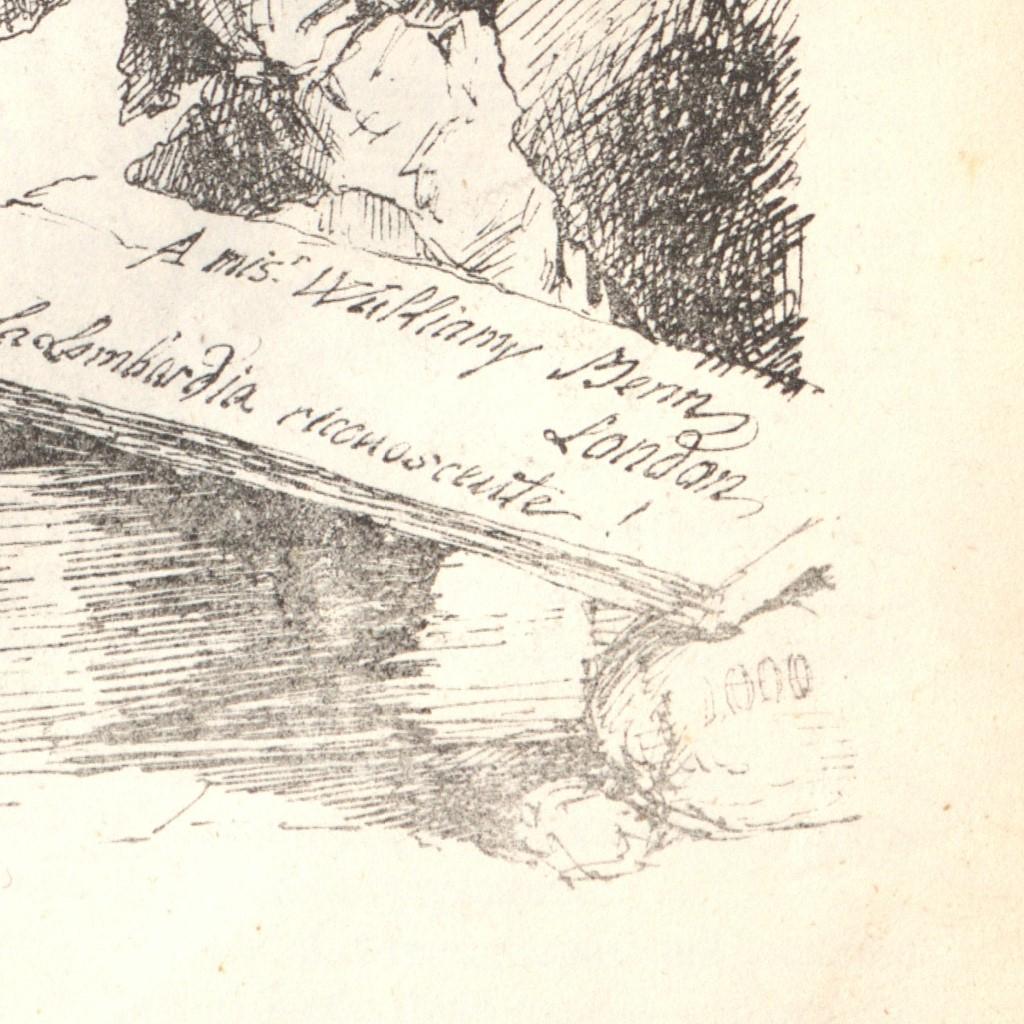 A mis.r Wulliam Benn
London
la Lombardia riconoscente !
1000